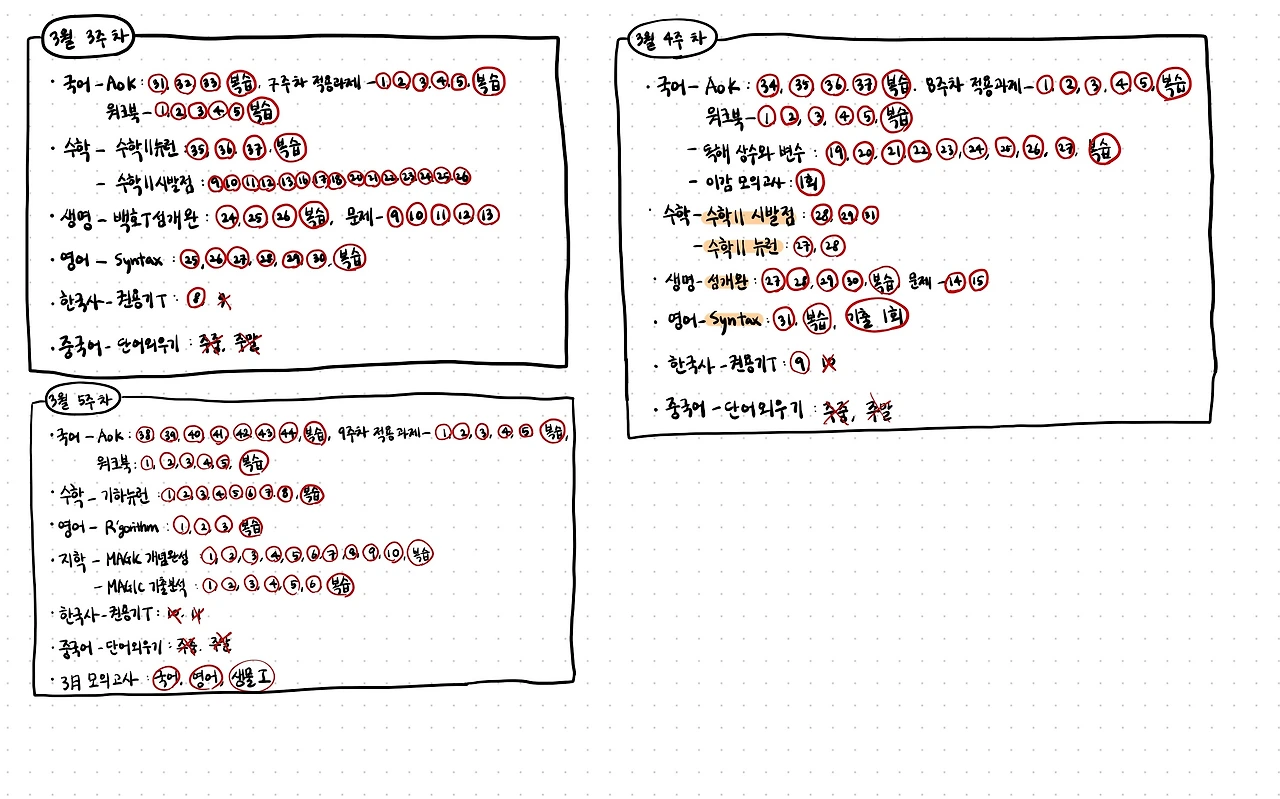 3월 3주차
· 국어 - AOK : 31, 32, 33, 복습, 7주차 적용과제 - 1, 2, 3, 4, 5, 복습
워크북 - 1, 2, 3, 4, 5 복습
· 수학 - 수학II뉴런 : 35, 36, 37, 복습
- 수학II시발점 : 9 10 11 12 13 16 17 18 20 21 22 23 24 25 26
· 생명 - 백호T섬개완 : 24, 25, 26 복습, 문제 - 9 10 11 12 13
· 영어 - Syntax : 25, 26 27, 28, 29 30, 복습
· 한국사 - 권용기T : 8 9
· 중국어 - 단어외우기 : 주중, 주말
3월 4주차
· 국어 - AOK : 34, 35 36, 37 복습, 8주차 적용과제 - 1, 2, 3, 4 5, 복습
워크북 - 1 2, 3, 4 5, 복습
- 독해 상수와 변수 : 19, 20, 21, 22 23, 24, 25, 26, 27, 복습
- 이감 모의고사 : 1회
· 수학 - 수학II 시발점 : 28, 29, 31
- 수학II 뉴런 : 27, 28
· 생명 - 섬개완 : 27 28, 29, 30, 복습 문제 - 14 15
· 영어 - Syntax : 31, 복습, 기출 1회
· 한국사 - 권용기T : 9 10
· 중국어 - 단어외우기 : 주중, 주말
3월 5주차
· 국어 - AOK : 38 39, 40, 41, 42 43, 44, 복습, 9주차 적용과제 - 1, 2, 3, 4, 5 복습,
워크북 : 1, 2, 3, 4, 5, 복습
· 수학 - 기하뉴런 : 1 2, 3, 4, 5, 6, 7, 8, 복습
· 영어 - R'gorithm : 1, 2, 3 복습
· 지학 - MAGIC 개념완성 1, 2, 3, 4, 5, 6, 7, 8, 9, 10, 복습
- MAGIC 기출분석 : 1, 2, 3, 4, 5, 6 복습
· 한국사 - 권용기T : 10, 11
· 중국어 - 단어외우기 : 주중, 주말
· 3月 모의고사 : 국어, 영어, 생물I